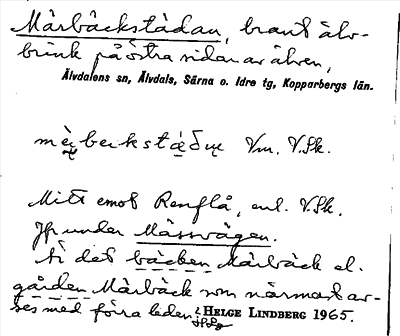 Mårbäckstädan, brant älv-
brink på östra sidan av älven,
Älvdalens sn, Älvdals, Särna o. Idre tg, Kopparbergs län.
Vm. V.Sk.
Mitt emot Renflå, enl. V.Sk.
Jfr under Mässvägen.
Är det bäcken Mårbäck el.
gården Mårbäck som närmast av-
ses med förra leden?
HELGE LINDBERG 1965.